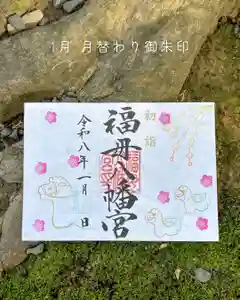 1月 月替わり御朱印
初詣
福母八幡宮
令和八年一月 日